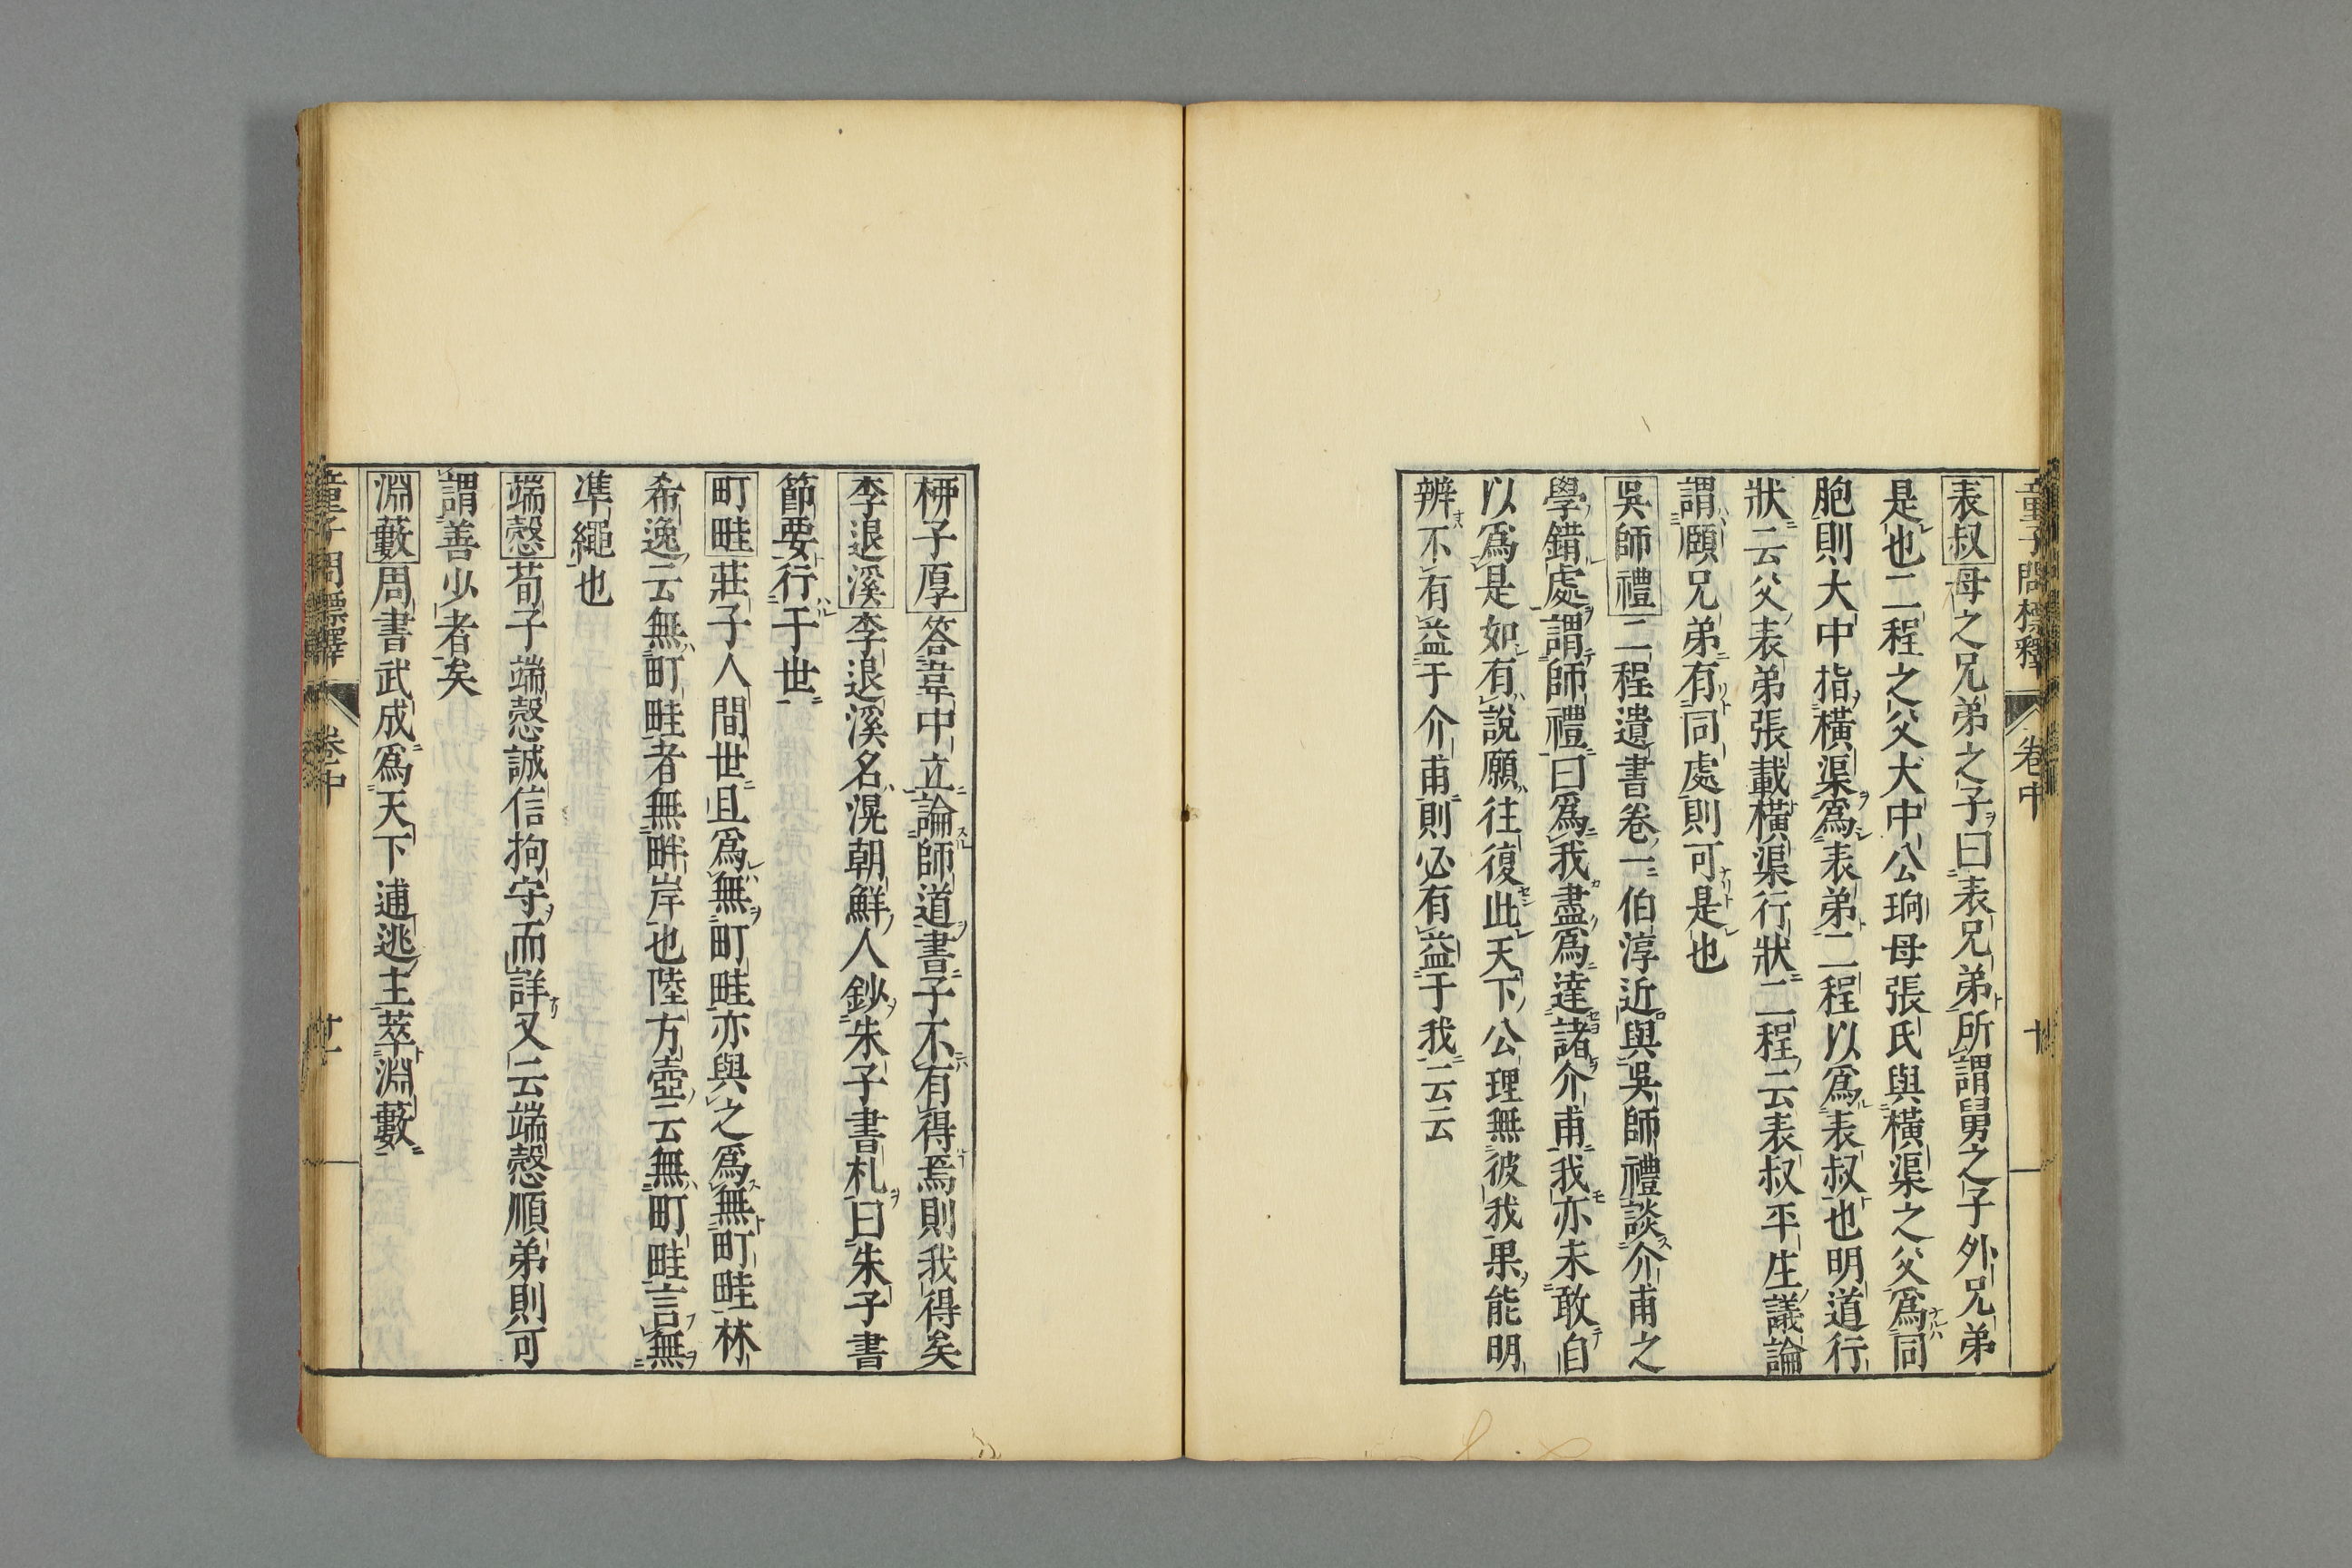 童子問標釋 卷中
表叔母之兄弟之子曰表兄弟所謂舅之子外兄弟
是也二程之父大中公珦母張氏與橫渠之父爲同
胞則大中指橫渠爲表弟二程以爲表叔也明道行
狀云父表弟張載橫渠行狀二程云表叔平生議論
謂頤兄弟有同處則可是也
吳師禮二程遺書卷一伯淳近與吳師禮談介甫之
學錯處謂師禮曰爲我盡爲達諸介甫我亦未敢自
以爲是如有說願往復此天下公理無彼我果能明
辨不有益于介甫則必有益于我云云
柳子厚答韋中立論師道書子不有得焉則我得矣
李退溪李退溪名滉朝鮮人鈔朱子書札曰朱子書
節要行于世
町畦莊子人間世且爲無町畦亦與之爲無町畦林
希逸云無町畦者無畔岸也陸方壺云無町畦言無
準繩也
端愨荀子端愨誠信拘守而詳又云端愨順弟則可
謂善少者矣
淵藪周書武成爲天下逋逃主萃淵藪
童子問標釋 卷中